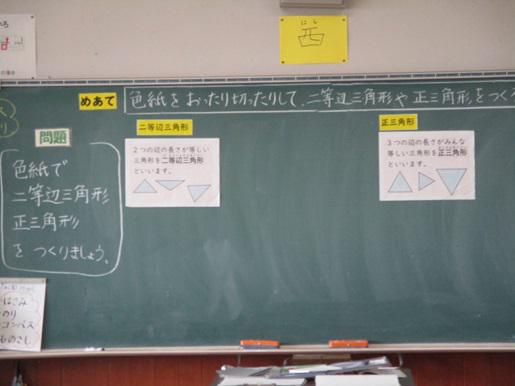 にし
西
めあて
色紙をおったり切ったりして、二等辺三角形や正三角形をつくろ
問題
色紙で
二等辺三角形
正三角形
をつくりましょう。
二等辺三角形
2つの辺の長さが等しい
三角形を二等辺三角形
といいます。
正三角形
3つの辺の長さがみんな
等しい三角形を正三角形
といいます。
はさみ
のり
コンパス
ものさし